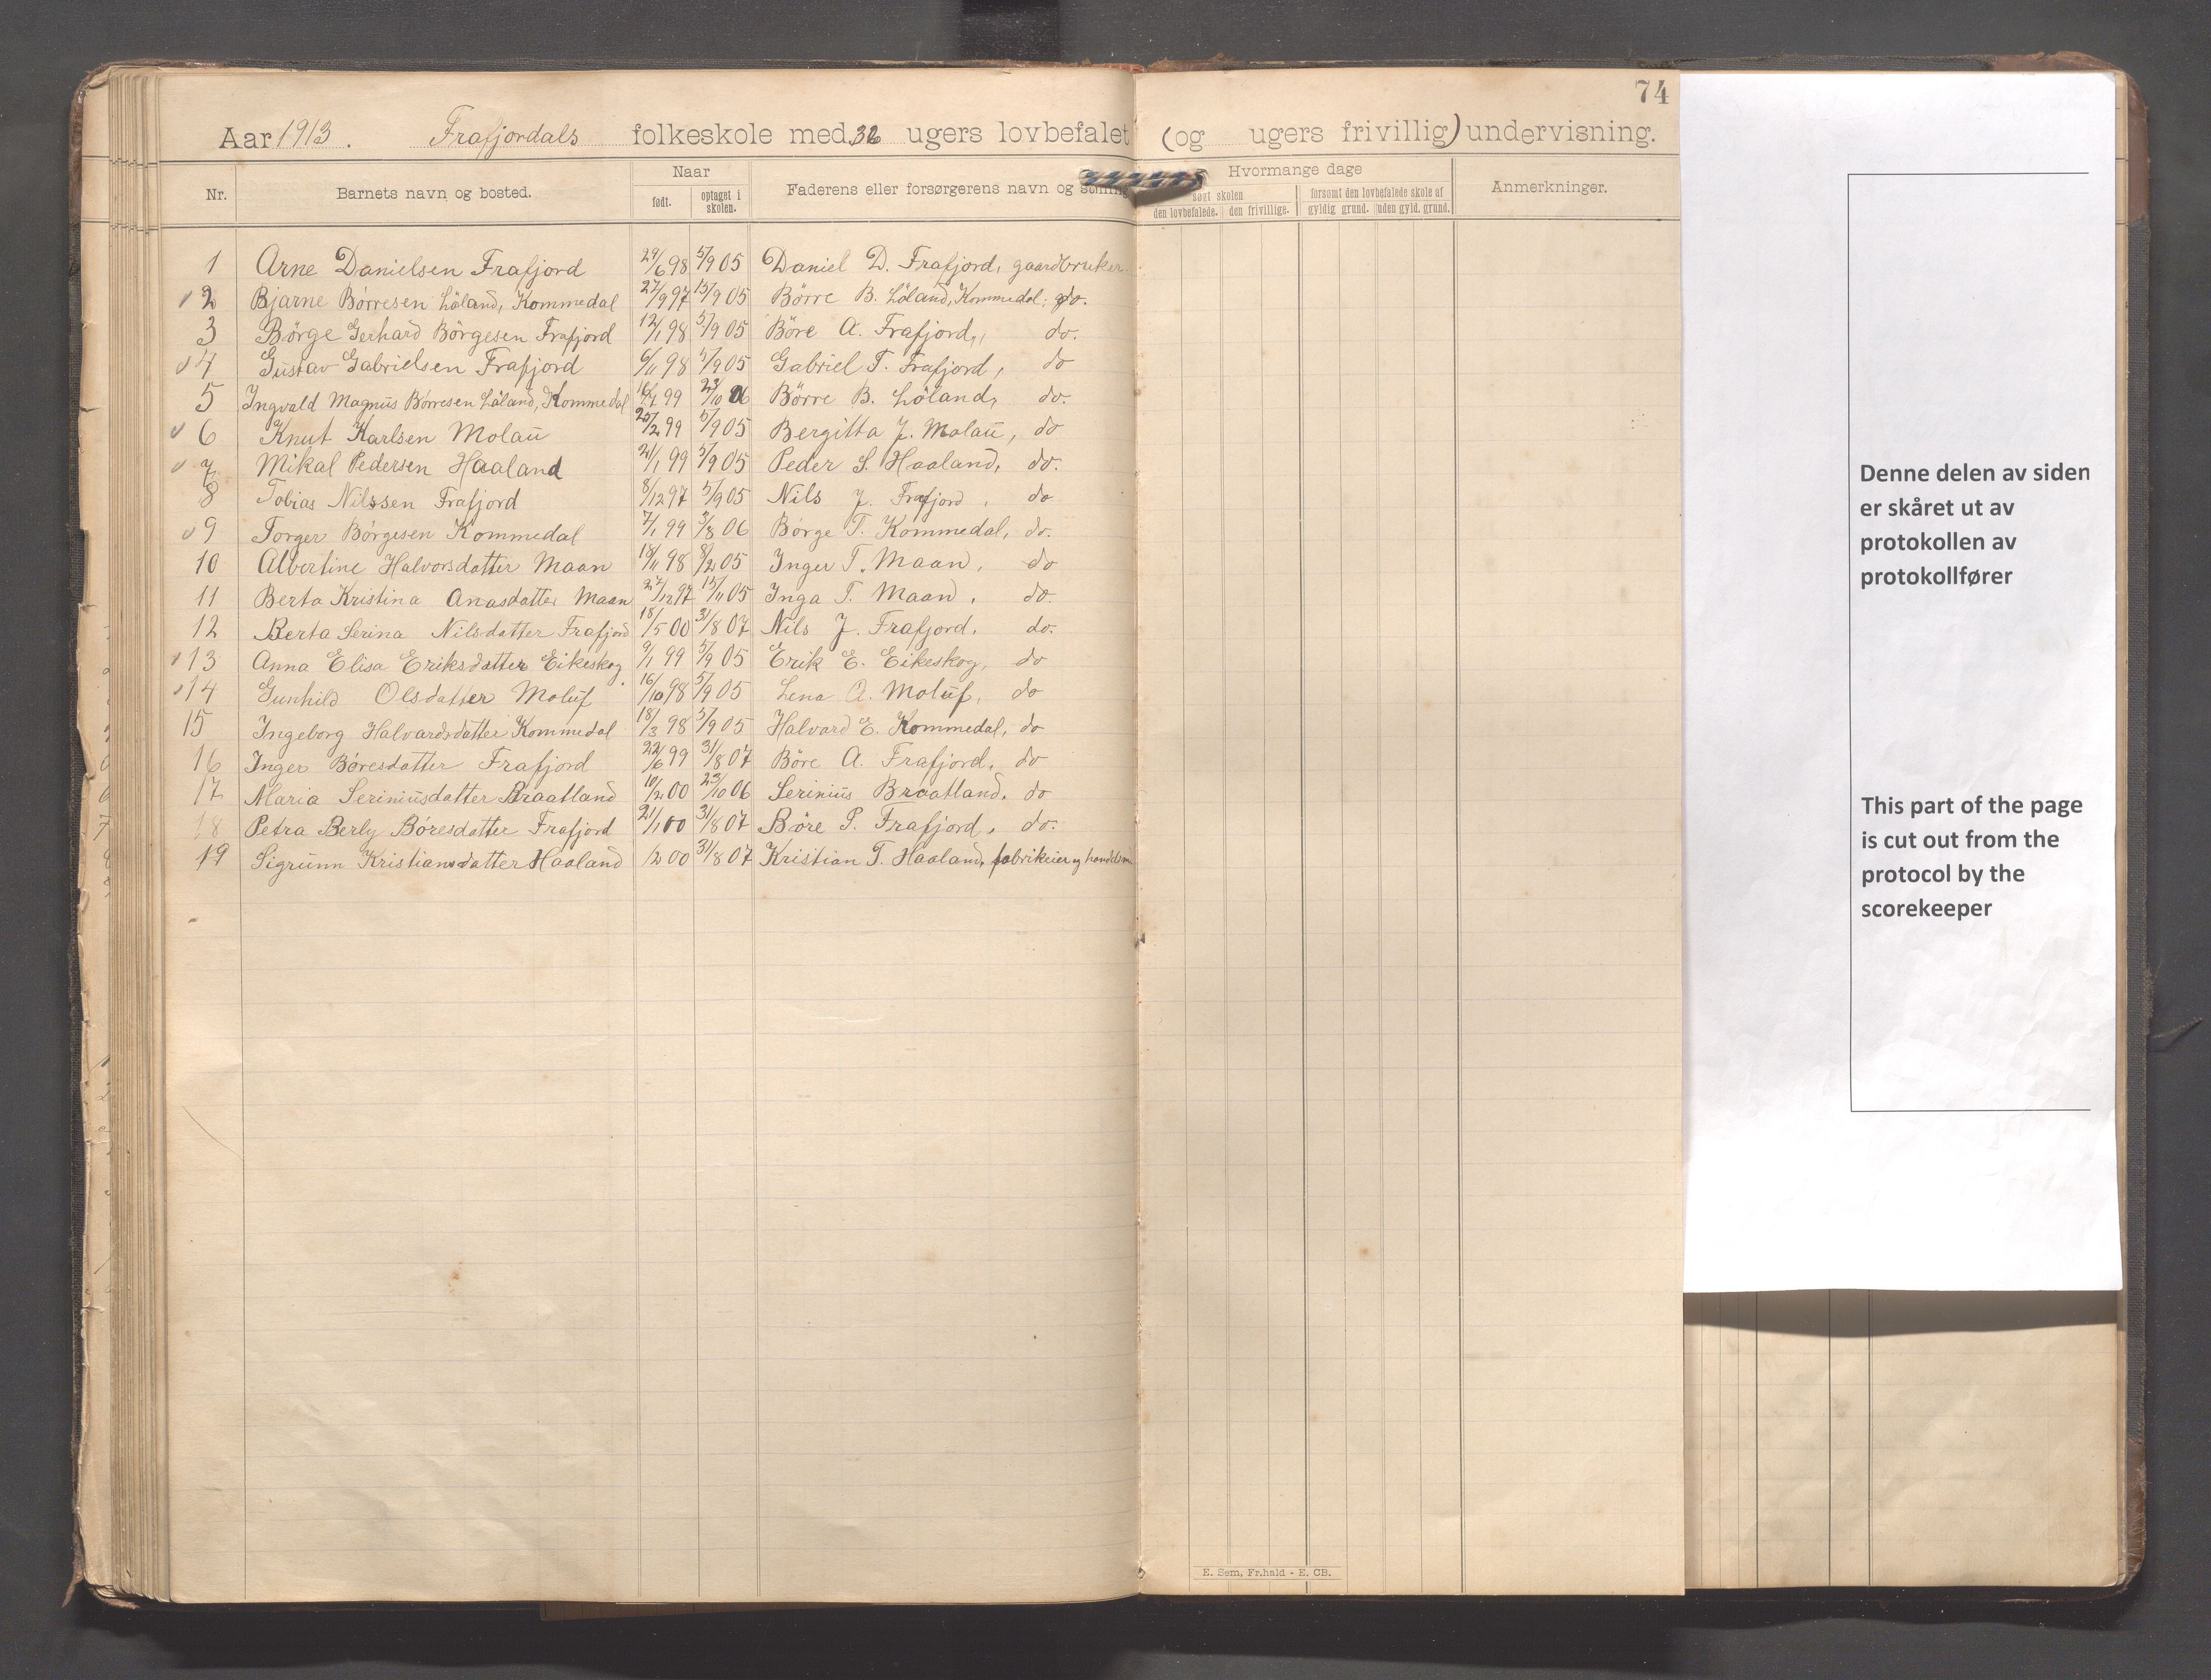 74
Aar 1913. Frafjordals folkeskole med 32 ugers lovbefalet (og ugers frivillig) undervisning.
Nr. Barnets navn og bosted. Naar født. optaget i skolen. Faderens eller forsørgerens navn og Hvormange dage søgt skolen den lovbefalede. den frivillige. forsømt den lovbefalede skole af gyldig grund. uden gyld. grund. Anmerkninger.
1 Arne Danielsen Frafjord 29/6 98 5/9 05 Daniel D. Frafjord, gaardbruker
2 Bjarne Börresen Löland, Kommedal 27/9 97 15/9 05 Börre B. Löland, Kommedal: do.
3 Börge Gerhard Börgesen Frafjord 12/1 98 5/9 05 Böre A. Frafjord, do.
4 Gustav Gabrielsen Frafjord 6/11 98 5/9 05 Gabriel T. Frafjord, do
5 Ingvald Magnus Börresen Löland, Kommedal 99 23/10 06 Börre B. Löland, do.
6 Knut Karlsen Molau 25/2 99 5/9 05 Bergitta J. Molau, do
7 Mikal Pedersen Haaland 21/1 99 5/9 05 Peder S. Haaland, do.
8 Tobias Nilssen Frafjord 8/12 97 5/9 05 Nils J. Frafjord, do
9 Torger Börgesen Kommedal 7/1 99 3/8 06 Börge T. Kommedal, do.
10 Albertine Halvorsdatter Maan 18/11 98 05 Inger T. Maan, do
11 Berta Kristina Anasdatter Maan 27/12 97 15/11 05 Inga T. Maan, do.
12 Berta Serina Nilsdatter Frafjord 18/5 00 31/8 07 Nils J. Frafjord. do.
13 Anna Elisa Eriksdatter Eikeskog 9/1 99 5/9 05 Erik E. Eikeskog, do
14 Gunhild Olsdatter Moluf 16/10 98 5/9 05 Lena A. Moluf, do
15 Ingeborg Halvardsdatter Kommedal 18/3 98 5/9 05 Halvard E. Kommedal, do
16 Inger Böresdatter Frafjord 22/6 99 31/8 07 Böre A. Frafjord, do
17 Maria Seriniusdatter Braatland 10/2 00 23/10 06 Serinius Braatland. do
18 Petra Berly Böresdatter Frafjord 21/1 00 31/8 07 Böre P. Frafjord, do.
19 Sigrunn Kristiansdatter Haaland /2 00 31/8 07 Kristian T. Haaland, fabrikeier og
E. Sem, Fr.hald - E. CB.
Denne delen av siden
er skåret ut av
protokollen av
protokollfører
This part of the page
is cut out from the
protocol by the
scorekeeper